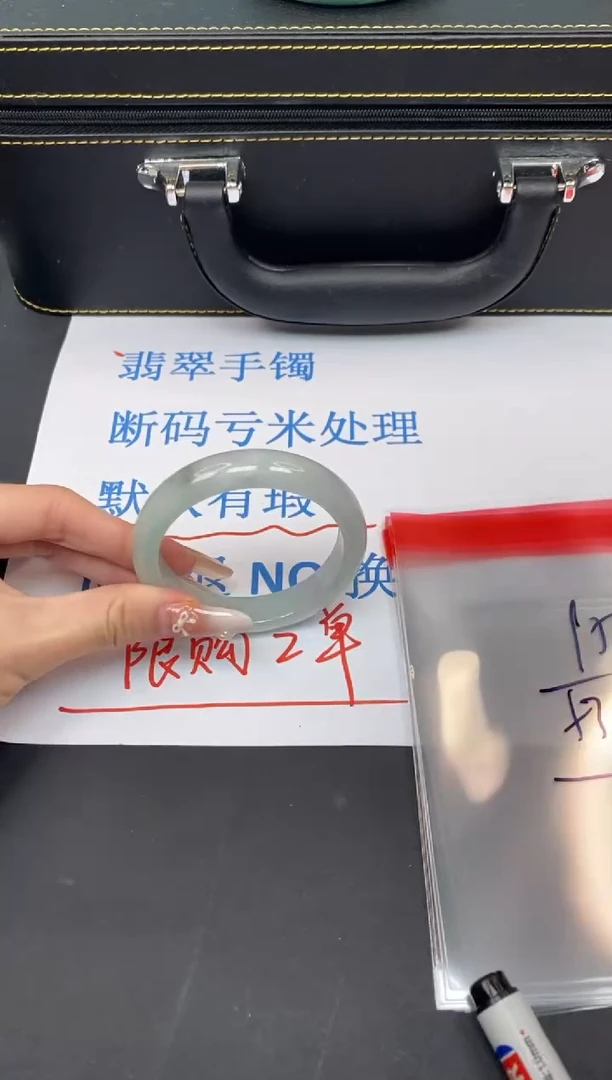 翡翠手镯
断码亏米处理
默 有瑕
NO 换
限购2单